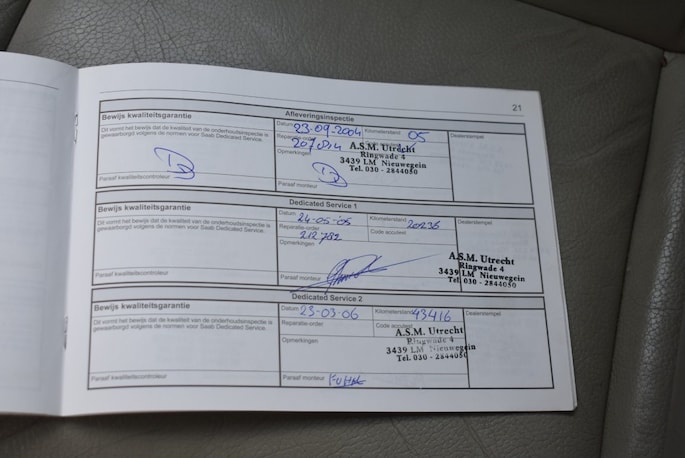 21
Afleveringsinspectie
Bewijs kwaliteitsgarantie
Dit vormt het bewijs dat de kwaliteit van de onderhoudsinspectie is
gewaarborgd volgens de normen voor Saab Dedicated Service.
Paraaf kwaliteitscontroleur
Datum 23-09-2004 Kilometerstand 05
Reparatie-order 207814
Opmerkingen
Paraaf monteur
Dealerstempel
A.S.M. Utrecht
Ringwade 4
3439 LM Nieuwegein
Tel. 030 - 2844050
Dedicated Service 1
Bewijs kwaliteitsgarantie
Dit vormt het bewijs dat de kwaliteit van de onderhoudsinspectie is
gewaarborgd volgens de normen voor Saab Dedicated Service.
Paraaf kwaliteitscontroleur
Datum 24-05-05 Kilometerstand 20236
Reparatie-order 212782 Code accutest
Opmerkingen
Paraaf monteur
Dealerstempel
A.S.M. Utrecht
Ringwade 4
3439 LM Nieuwegein
Tel. 030 - 2844050
Dedicated Service 2
Bewijs kwaliteitsgarantie
Dit vormt het bewijs dat de kwaliteit van de onderhoudsinspectie is
gewaarborgd volgens de normen voor Saab Dedicated Service.
Paraaf kwaliteitscontroleur
Datum 23-03-06 Kilometerstand 43416
Reparatie-order Code accutest
Opmerkingen
Paraaf monteur
Dealerstempel
A.S.M. Utrecht
Ringwade 4
3439 LM Nieuwegein
Tel. 030 - 2844050